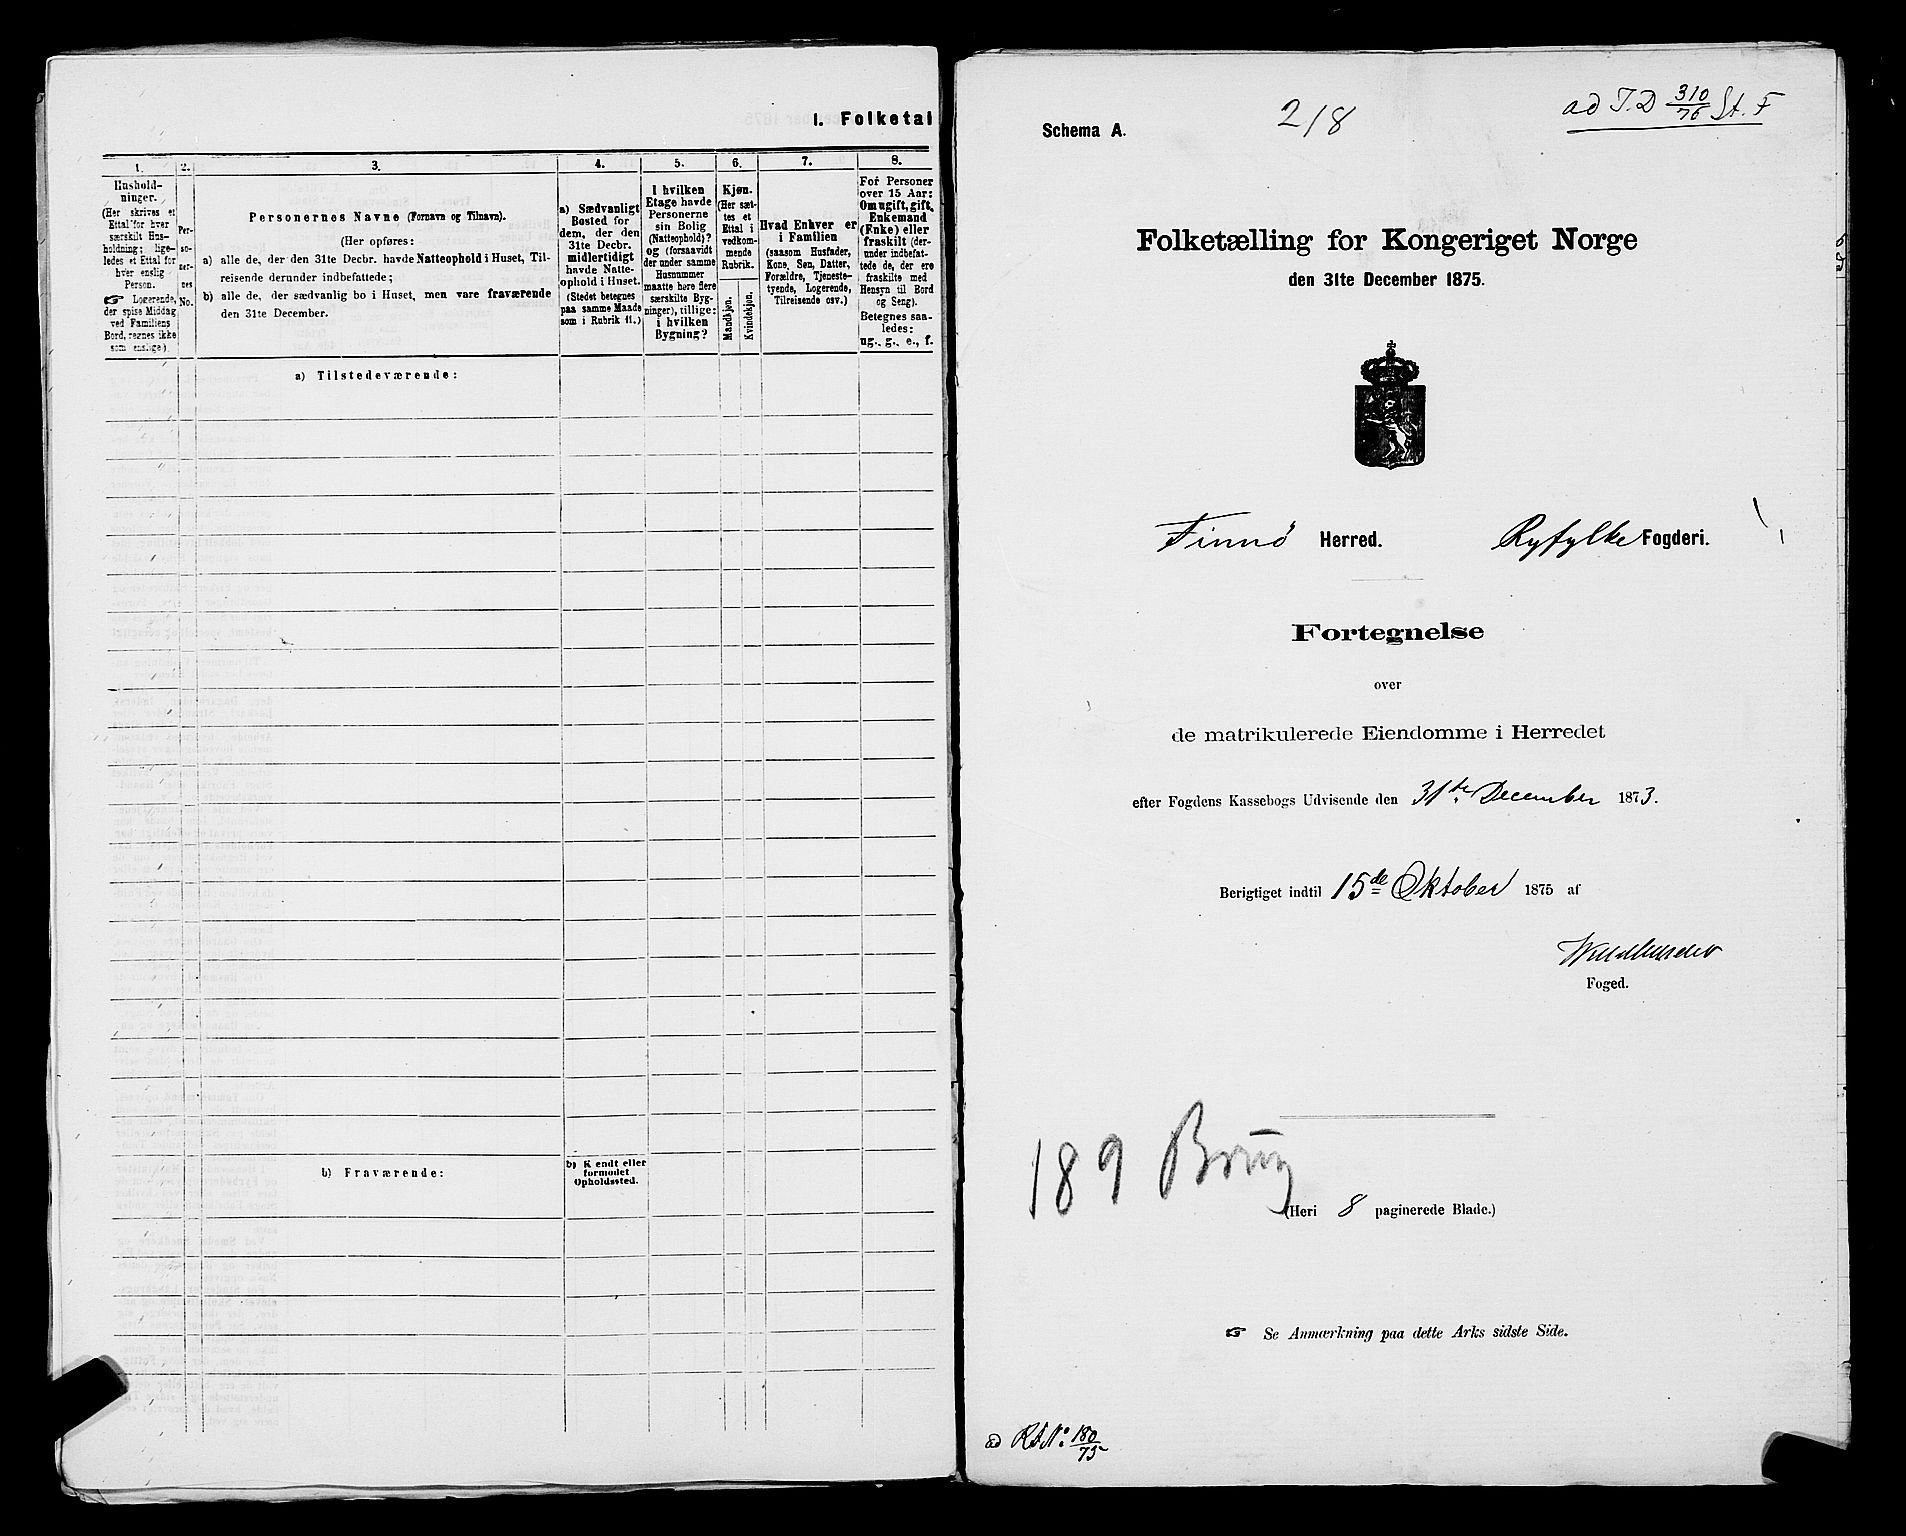 I. Folketal
1. 2. 3. 4. 5. 6. 7. 8.
Hushold-
ninger.
(Her skrives et
Ettal for hver
særskilt Hus-
holdning; lige-
ledes et Ettal for
hver enslig
Person.
☞ Logerende,
der spise Middag
ved Familiens
Bord, regnes ikke
som enslige.)
Per-
so-
ner-
nes
No.
Personernes Navne (Fornavn og Tilnavn).
(Her opføres:
a) alle de, der den 31te Decbr. havde Natteophold i Huset, Til-
reisende derunder indbefattede;
b) alle de, der sædvanlig bo i Huset, men vare fraværende
den 31te December.
a) Sædvanligt
Bosted for
dem, der den
31te Decbr.
midlertidigt
havde Natte-
ophold i Huset.
(Stedet betegnes
paa samme Maade
som i Rubrik 11.)
I hvilken
Etage havde
Personerne
sin Bolig
(Natteophold)?
og (forsaavidt
der under samme
Husnummer
maatte høre flere
særskilte Byg-
ninger), tillige:
i hvilken
Bygning?
Kjøn.
(Her sæt-
tes et
Ettal i
vedkom-
mende
Rubrik.
Mandkjøn.
Kvindekjøn.
Hvad Enhver er
i Familien
(saasom Husfader,
Kone, Søn, Datter,
Forældre, Tjeneste-
tyende, Logerende,
Tilreisende osv.)
For Personer
over 15 Aar:
Om ugift, gift,
Enkemand
(Enke) eller
fraskilt (der-
under indbefat-
tede de, der ere
fraskilte med
Hensyn til Bord
og Seng).
Betegnes saa-
ledes:
ug., g., e., f.
a) Tilstedeværende:
b) Fraværende:
b) Kjendt eller
formodet
Opholdssted.
Schema A.
218
ad I.D 310/76 St. F
Folketælling for Kongeriget Norge
den 31te December 1875.
Finnø Herred. Ryfylke Fogderi.
Fortegnelse
over
de matrikulerede Eiendomme i Herredet
efter Fogdens Kassebogs Udvisende den 31te December 1873.
Berigtiget indtil 15de Oktober 1875 af
Foged.
189 Brug
(Heri 8 paginerede Blade.)
☞ Se Anmærkning paa dette Arks sidste Side.
ad RA No. 180/75